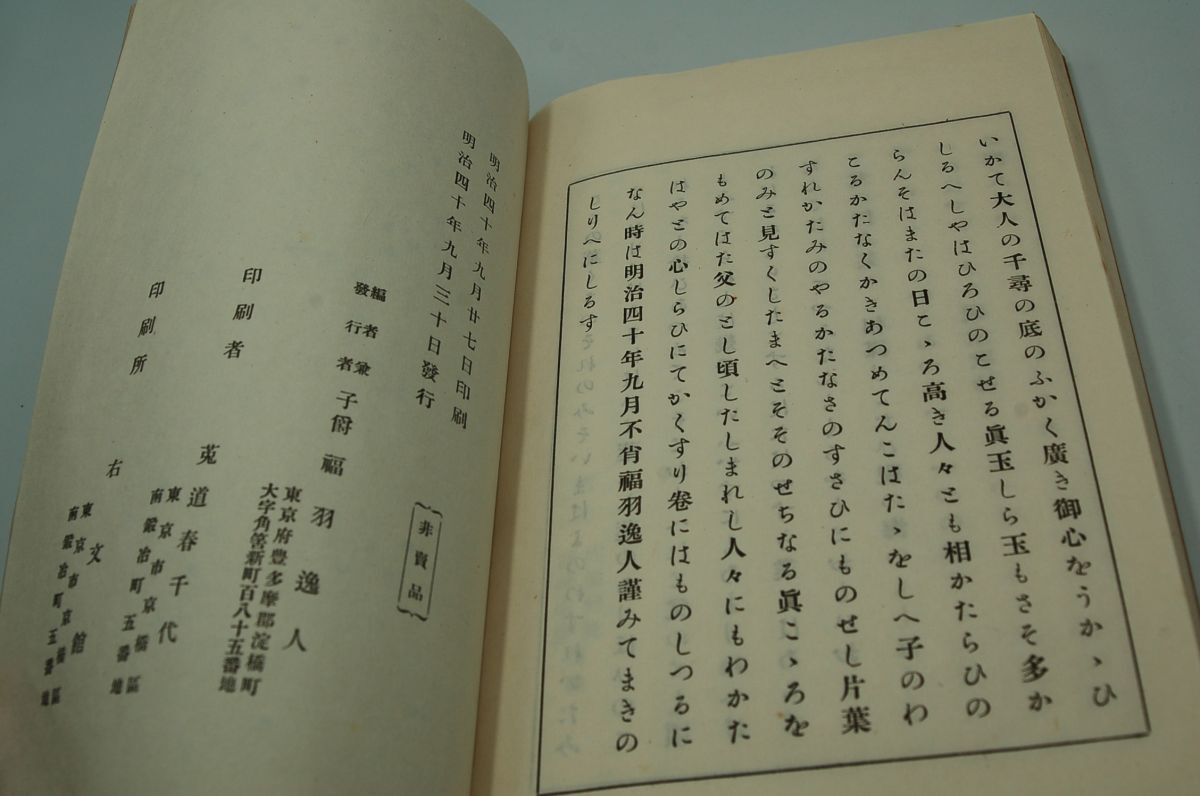 いかて大人の千尋の底のふかく廣き御心をうかゝひ
しるへしやはひろひのこせる眞玉しら玉もさそ多か
らんそはまたの日こゝろ高き人々とも相かたらひの
こるかたなくかきあつめてんこはたゝをしへ子のわ
すれかたみのやるかたなさのすさひにものせし片葉
のみと見すくしたまへとそそのせちなる眞こゝろを
もめてはた父のとし頃したしまれし人々にもわかた
はやとの心しらひにてかくすり卷にはものしつるに
なん時は明治四十年九月不肖福羽逸人謹みてまきの
しりへにしるす
明治四十年九月廿七日印刷
明治四十年九月三十日發行
非賣品
編者兼
發行者
子爵福羽逸人
東京府豊多摩郡淀橋町
大字角筈新町百八十五番地
印刷者
菟道春千代
東京市京橋區
南鍛冶町五番地
印刷所
右文館
東京市京橋區
南鍛冶町五番地